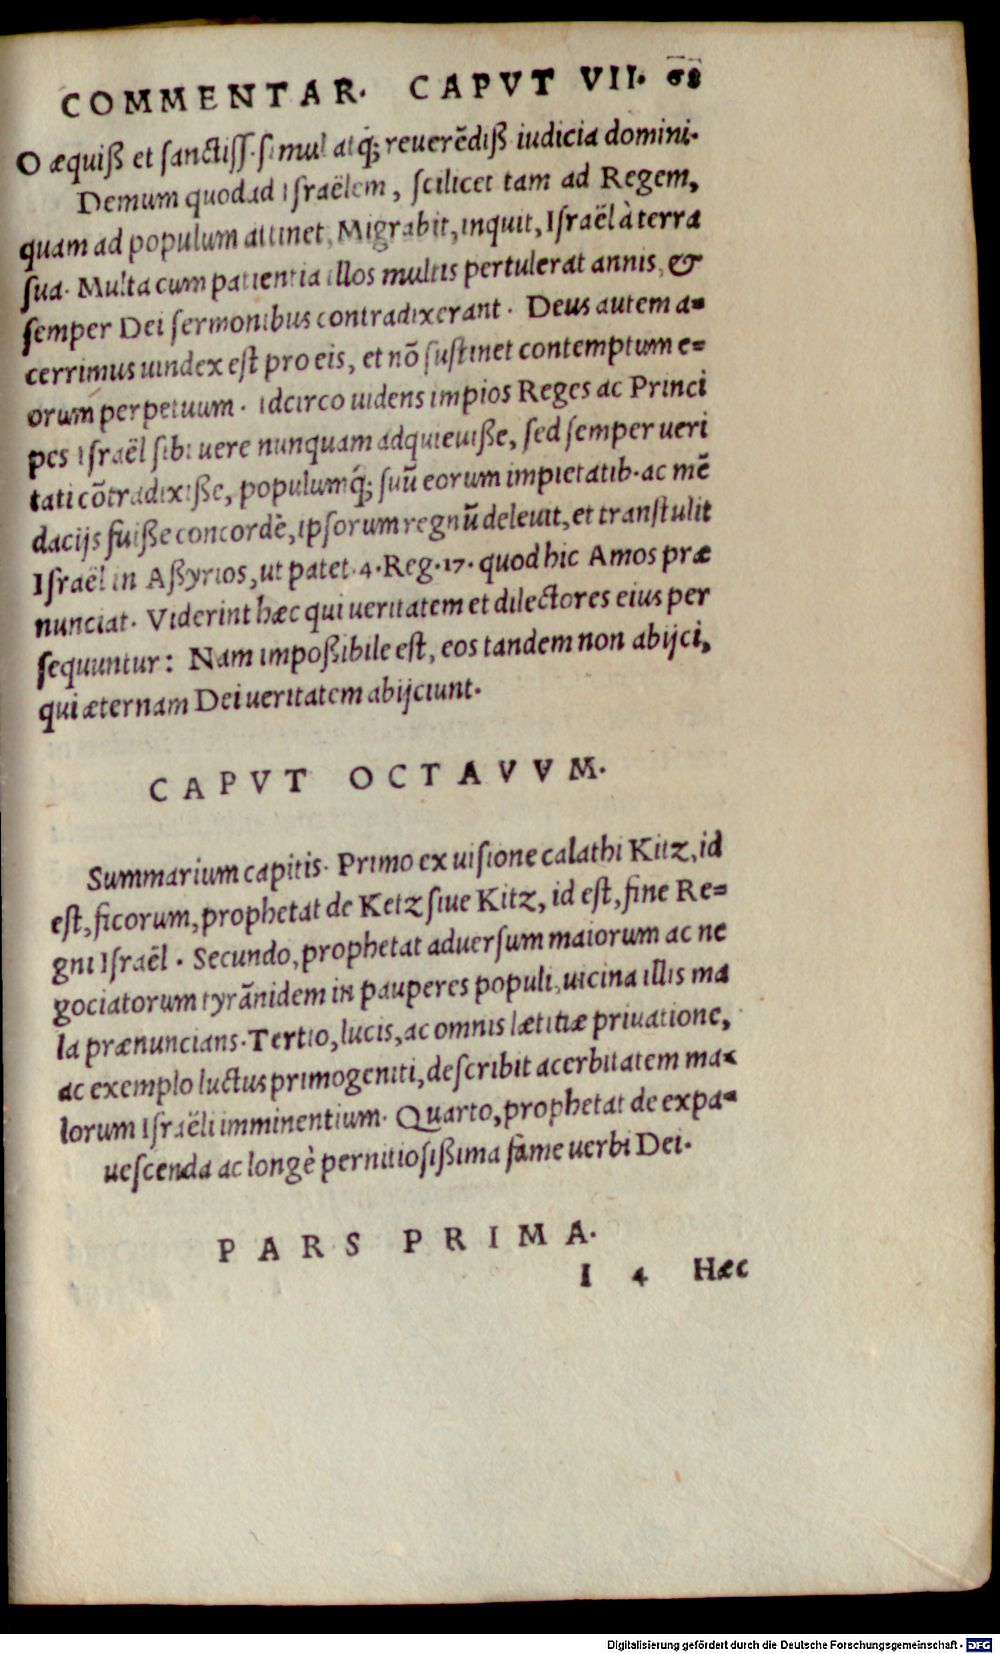 COMMENTAR. CAPVT VII. 68
O æquiß et sanctiss. simul atq́; reuerẽdiß iudicia domini.
Demum quod ad Israëlem, scilicet tam ad Regem,
quam ad populum attinet, Migrabit, inquit, Israël à terra
sua. Multa cum patientia illos multis pertulerat annis, &
semper Dei sermonibus contradixerant. Deus autem a=
cerrimus uindex est pro eis, et nõ sustinet contemptum e=
orum perpetuum. idcirco uidens impios Reges ac Princi
pes Israël sibi uere nunquam adquieuiße, sed semper ueri
tati cõtradixiße, populumq́; suũ eorum impietatib. ac mẽ
dacijs fuiße concordè, ipsorum regnũ deleuit, et transtulit
Israël in Aßyrios, ut patet 4. Reg. 17. quod hic Amos præ
nunciat. Viderint hæc qui ueritatem et dilectores eius per
sequuntur: Nam impoßibile est, eos tandem non abijci,
qui æternam Dei ueritatem abijciunt.
CAPVT OCTAVVM.
Summarium capitis. Primo ex uisione calathi Kitz, id
est, ficorum, prophetat de Ketz siue Kitz, id est, fine Re=
gni Israël. Secundo, prophetat aduersum maiorum ac ne
gociatorum tyrãnidem in pauperes populi, uicina illis ma
la prænuncians. Tertio, lucis, ac omnis lætitiæ priuatione,
ac exemplo luctus primogeniti, describit acerbitatem ma=
lorum Israëli imminentium. Quarto, prophetat de expa=
uescenda ac longè pernitiosißima fame uerbi Dei.
PARS PRIMA.
I 4 Hæc
Digitalisierung gefördert durch die Deutsche Forschungsgemeinschaft - DFG